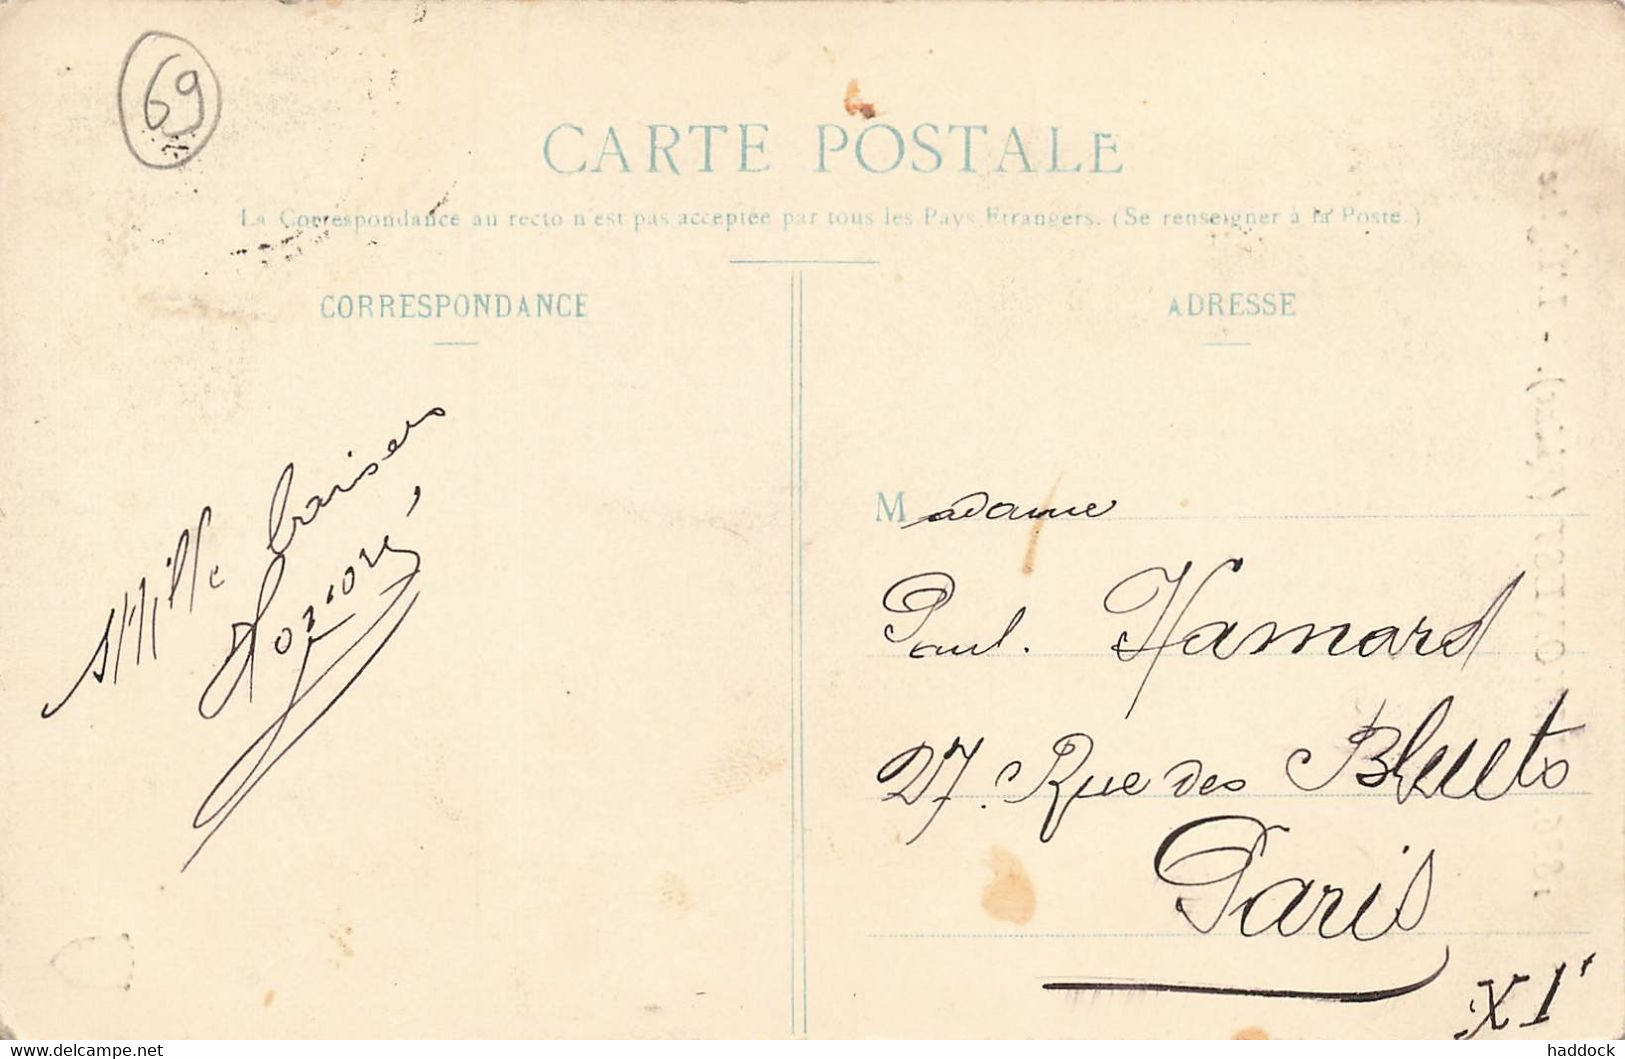 69
CARTE POSTALE
La Correspondance au recto n'est pas acceptée par tous les Pays Etrangers. (Se renseigner à la Poste.)
CORRESPONDANCE
Mille baisers
ADRESSE
Madame
Paul. Hamard
27. Rue des Bluets
Paris
XI'
www.delcampe.net
haddock